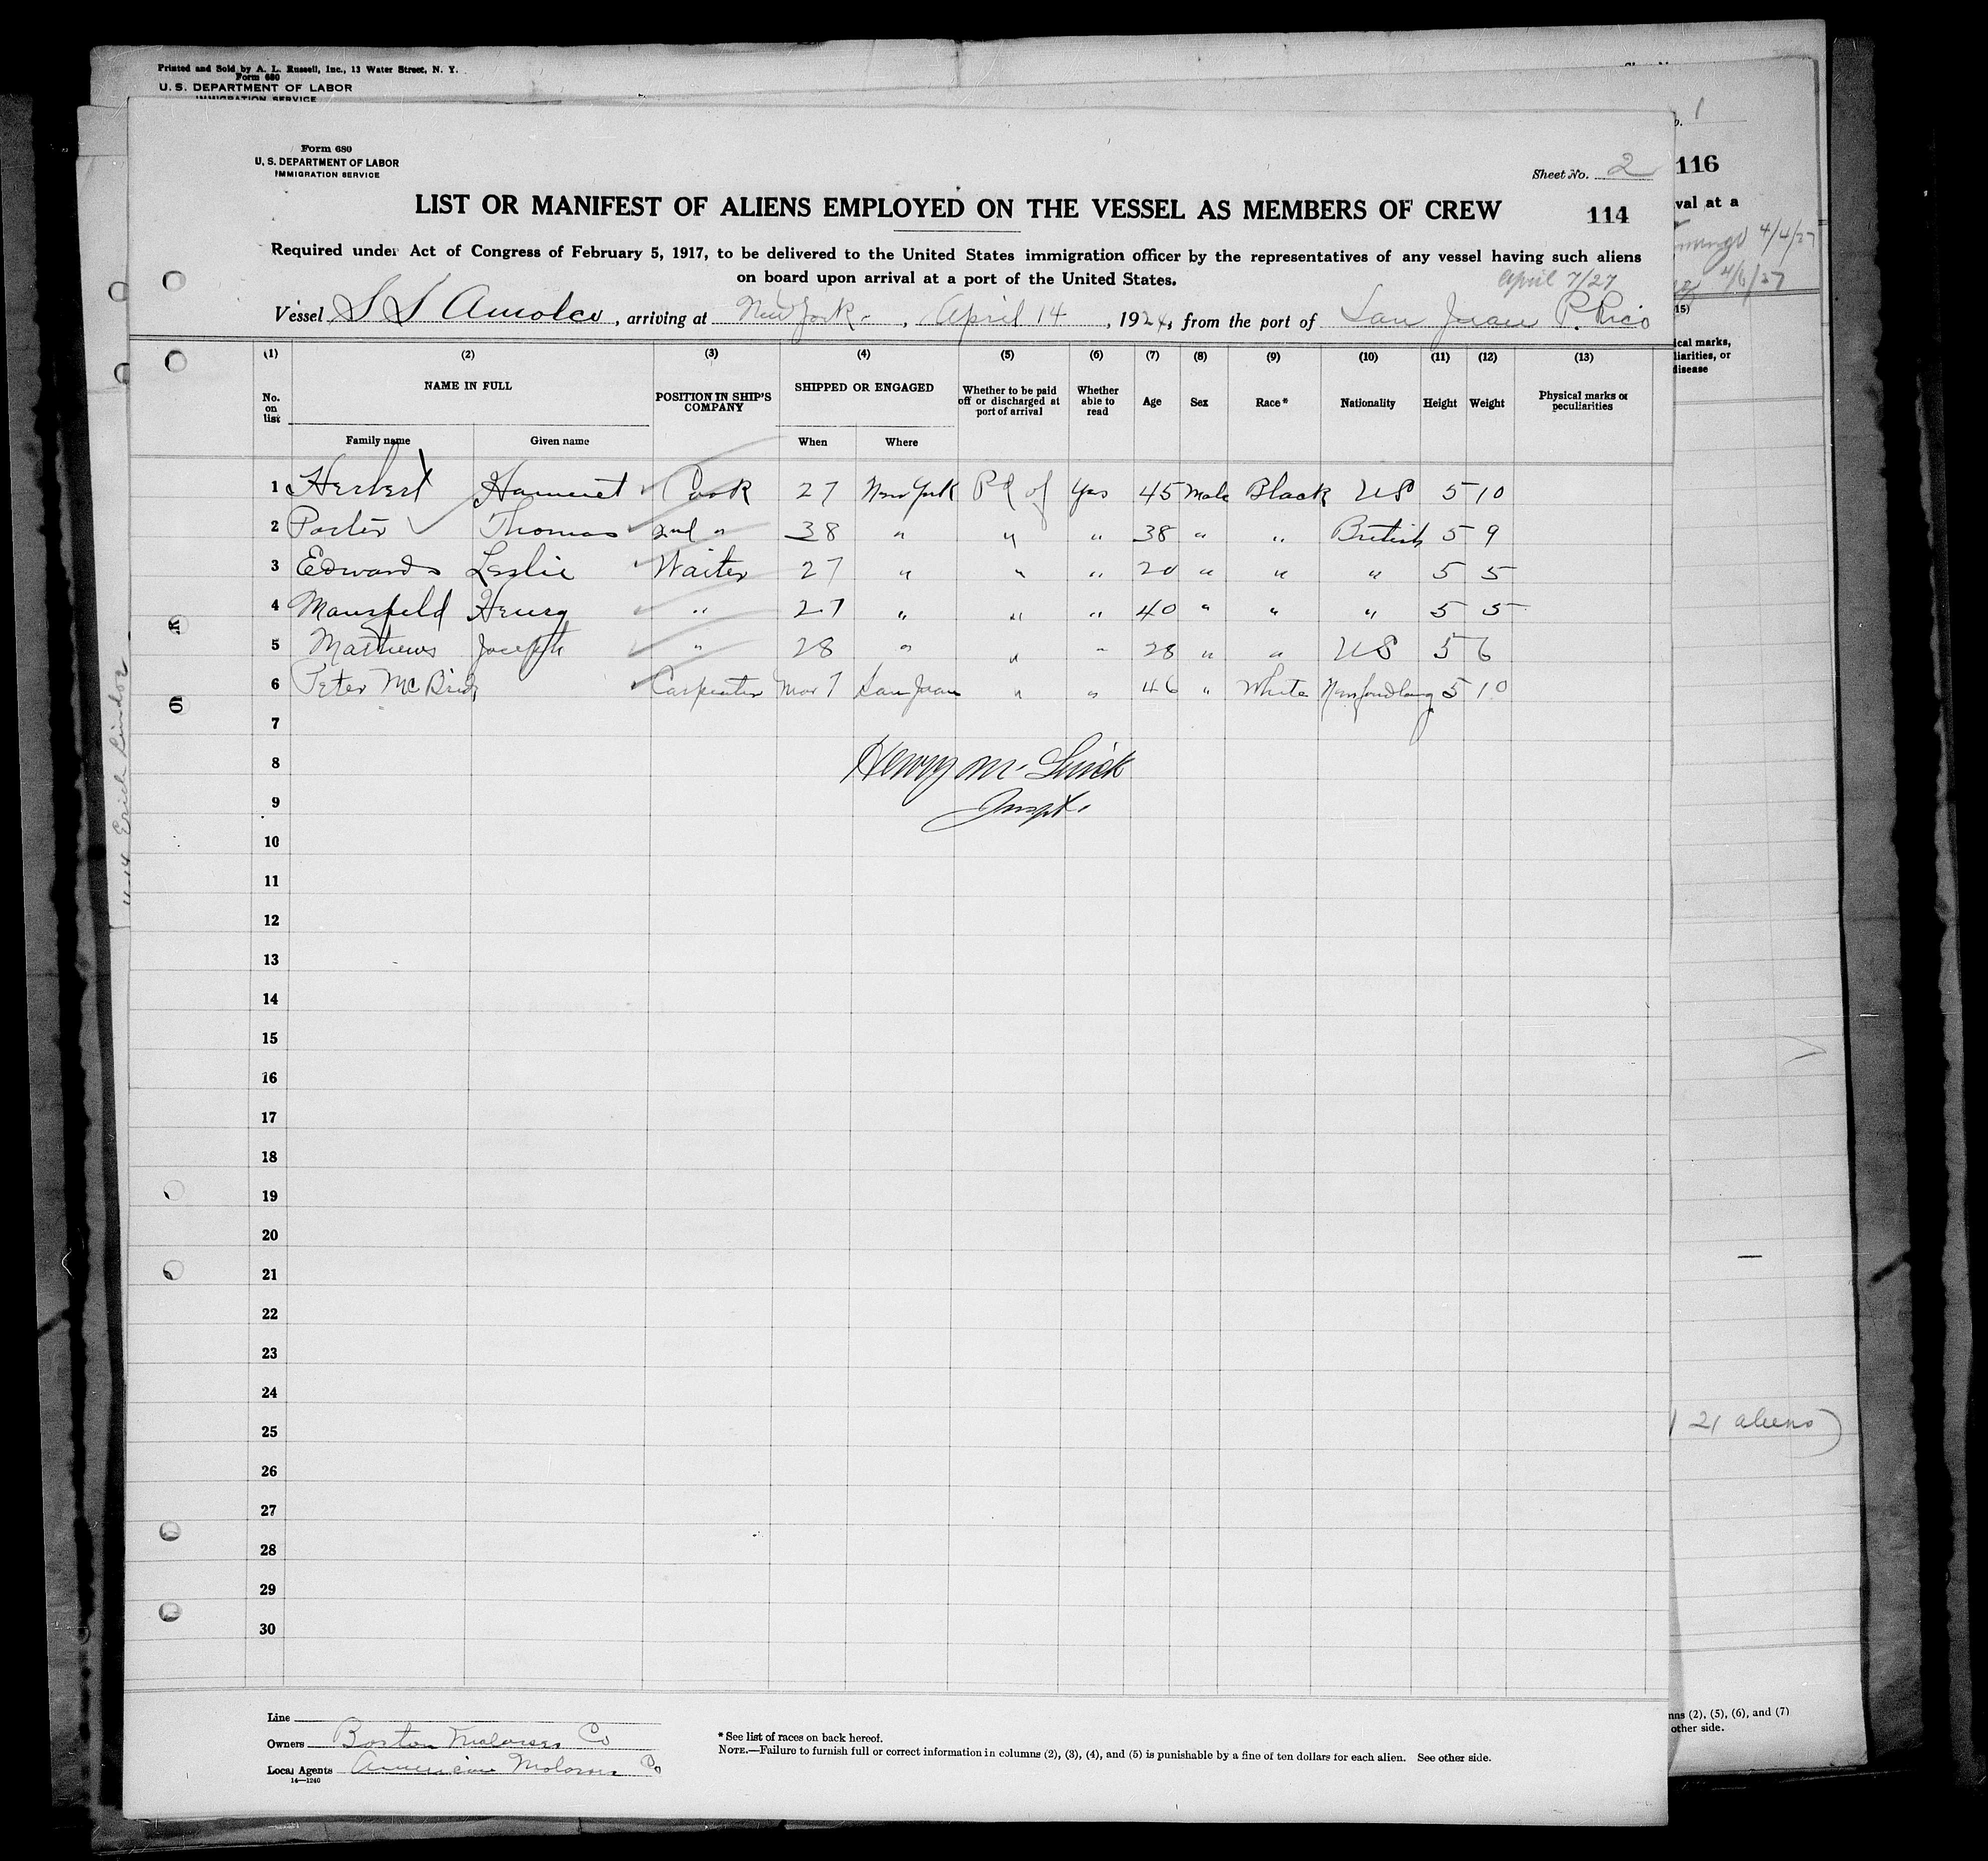 Printed and Sold by A. L. Russell, Inc., 13 Water Street, N. Y.
Form 680
U. S. DEPARTMENT OF LABOR
IMMIGRATION SERVICE
1
116
val at a
4/4/27
4/6/27
(15)
ical marks,
liarities, or
disease
Form 680
U. S. DEPARTMENT OF LABOR
IMMIGRATION SERVICE
Sheet No. 2
LIST OR MANIFEST OF ALIENS EMPLOYED ON THE VESSEL AS MEMBERS OF CREW
114
Required under Act of Congress of February 5, 1917, to be delivered to the United States immigration officer by the representatives of any vessel having such aliens
on board upon arrival at a port of the United States.
April 7/27
Vessel S S Amolco, arriving at New York, April 14, 192, from the port of San Juan P. Rico
(1) (2) (3) (4) (5) (6) (7) (8) (9) (10) (11) (12) (13)
No. on list NAME IN FULL POSITION IN SHIP'S COMPANY SHIPPED OR ENGAGED Whether to be paid off or discharged at port of arrival Whether able to read Age Sex Race* Nationality Height Weight Physical marks or peculiarities
Family name Given name When Where
1 Herbert Cook 27 New York Pd of Yes 45 Male Black US 5 10
2 Porter Thomas 2nd " 38 " " " 38 " " British 5 9
3 Edwards Leslie Waiter 27 " " " 20 " " " 5 5
4 Mansfield Henry " 27 " " " 40 " " " 5 5
5 Mathews Joseph " 28 " " " 28 " " US 5 6
6 Peter McBride Carpenter Mar 7 San Juan " " 46 " White Newfoundlang 5 10
7
8 Henry M.
9 Inspt.
10
11
12
13
14
15
16
17
18
19
20
21
22
23
24
25
21 aliens)
26
27
28
29
30
Line
Owners Boston Molasses Co
Local Agents American Molasses Co
14—1240
* See list of races on back hereof.
NOTE.—Failure to furnish full or correct information in columns (2), (3), (4), and (5) is punishable by a fine of ten dollars for each alien. See other side.
mns (2), (5), (6), and (7)
other side.